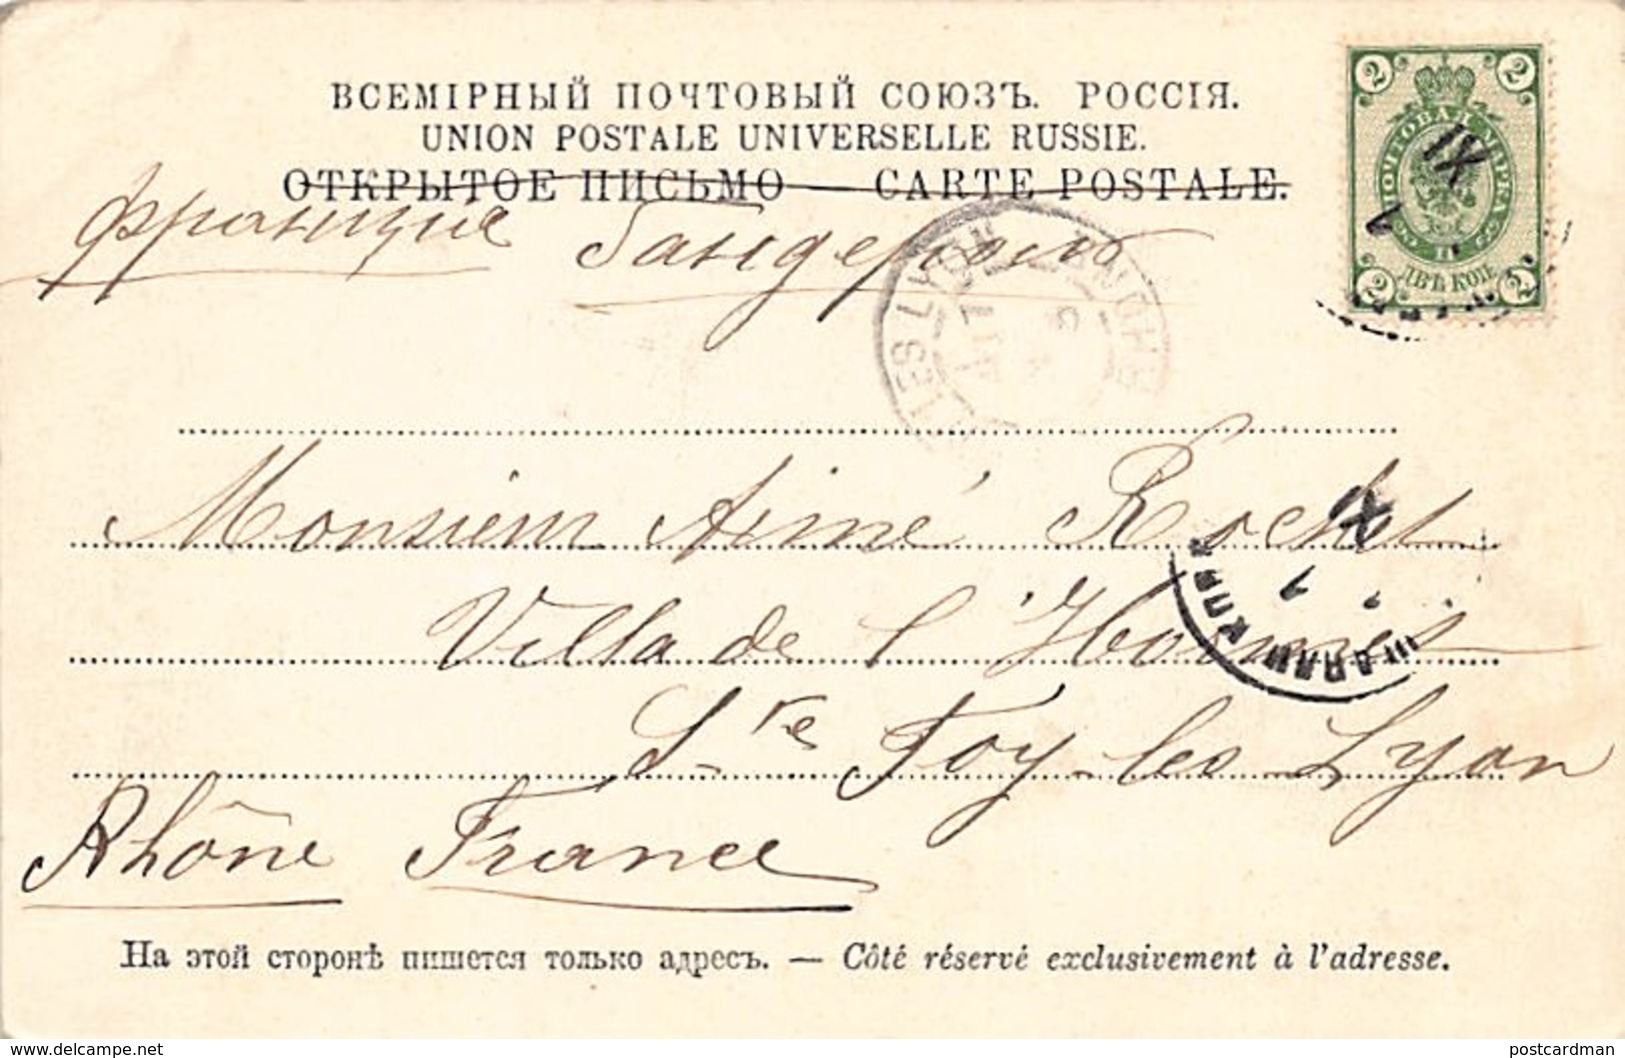 ВСЕМІРНЫЙ ПОЧТОВЫЙ СОЮЗЪ. РОССІЯ.
UNION POSTALE UNIVERSELLE RUSSIE.
ОТКРЫТОЕ ПИСЬМО — CARTE POSTALE.
Франція Бандероль
2 2
ПОЧТОВАЯ МАРКА
IX
1
2 ДВѢ КОП. 2
LES LYON
Monsieur Aimé Rochet
IX
1
Villa de l'Hormet
Ste Foy-les-Lyon
Rhône France
На этой сторонѣ пишется только адресъ. — Côté réservé exclusivement à l'adresse.
https://www.delcampe.net
postcardman